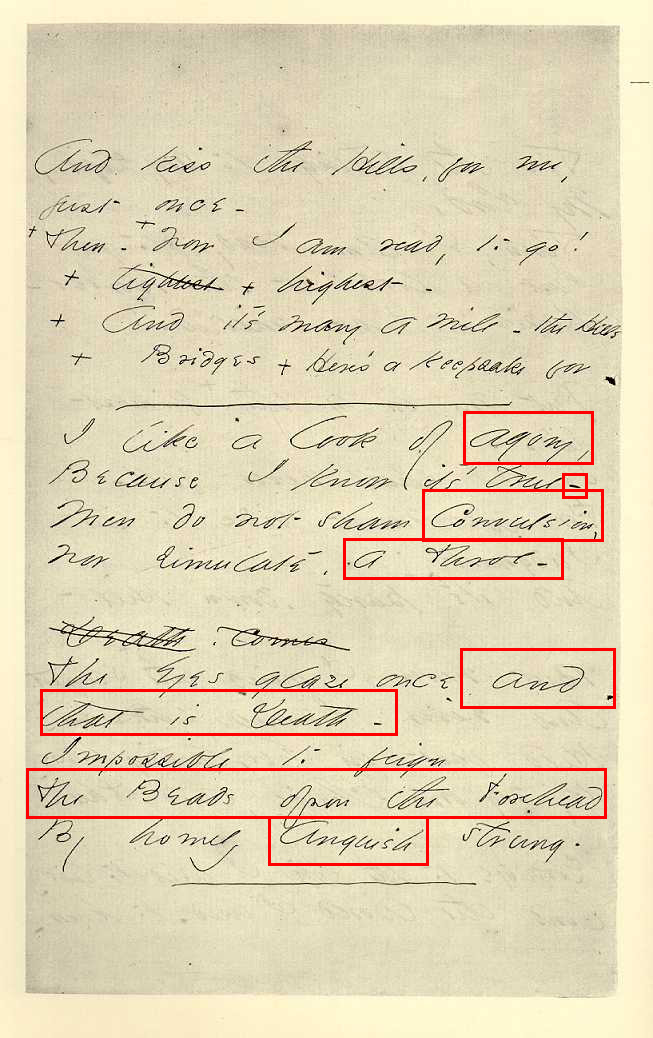 And kiss the Hills, for me,
just once -
+ Then - + Now I am ready to go!
+ tightest + highest -
+ And it's many a mile - the Hills
+ Bridges + Here's a keepsake for
I like a look of agony,
Because I know it's true -
Men do not sham Convulsion,
Nor simulate, a throe -
Death, comes
The Eyes glaze once - and
that is Death -
Impossible to feign
The Beads upon the Forehead
By homely Anguish strung.